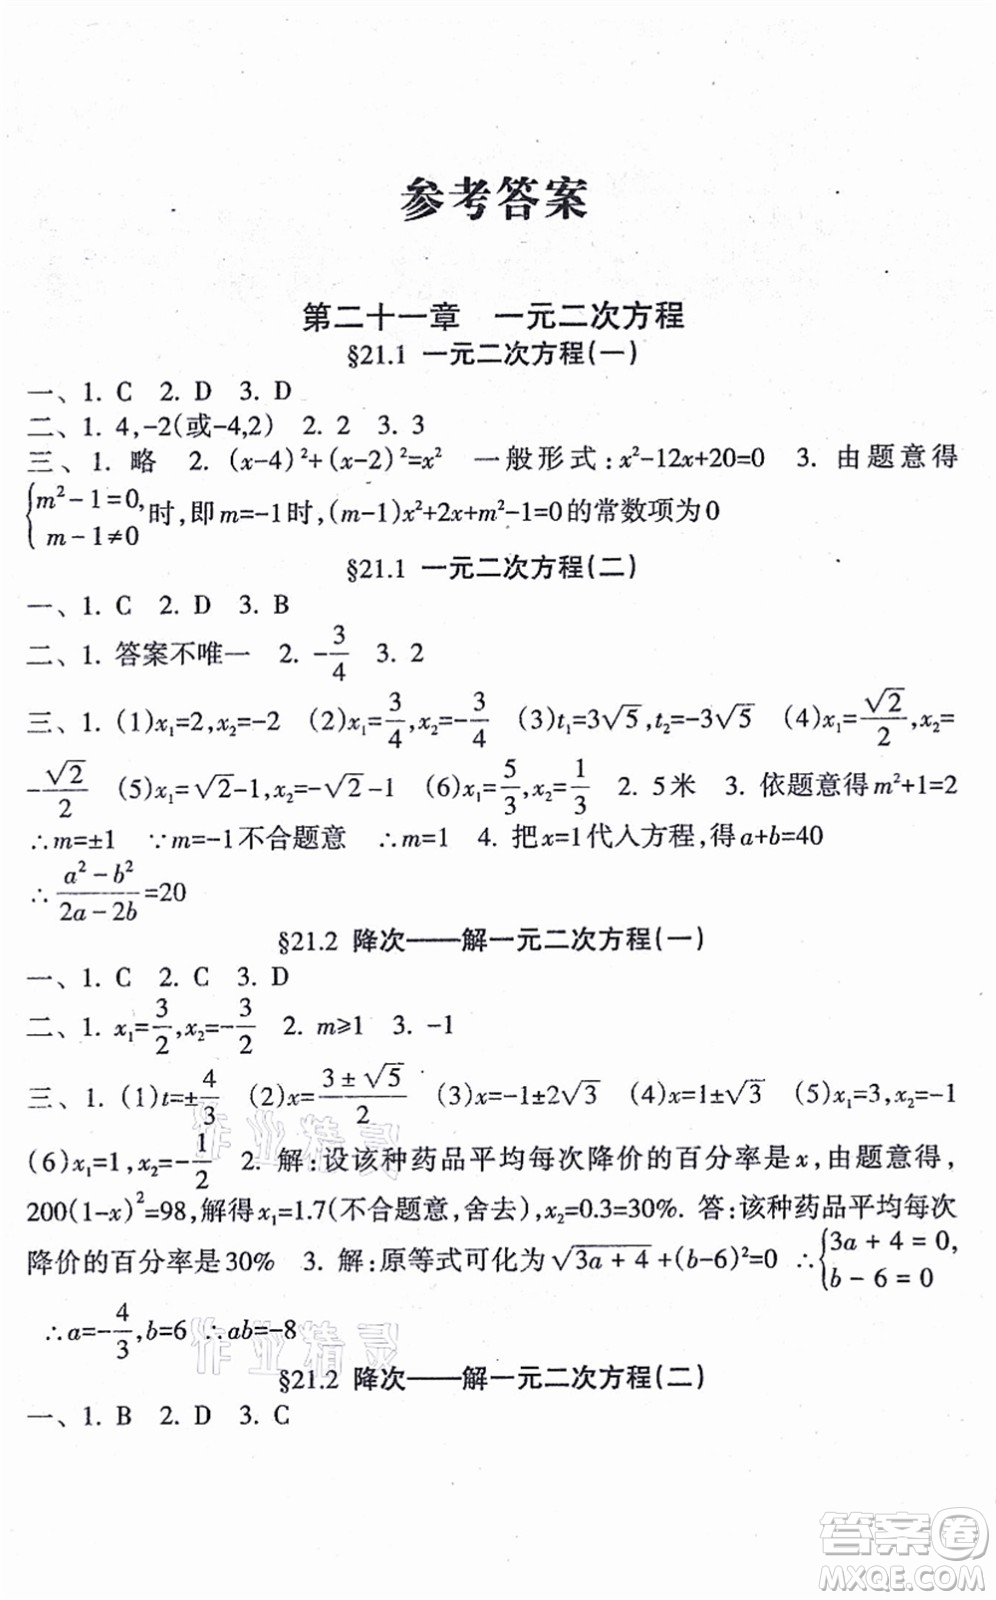 参考答案
第二十一章　一元二次方程
§21.1 一元二次方程(一)
一、1. C 2. D 3. D
二、1. 4,-2(或-4,2) 2. 2 3. 3
三、1. 略 2. (x-4)²+(x-2)²=x² 一般形式:x²-12x+20=0 3. 由题意得
{m²-1=0, m-1≠0 时,即m=-1时,(m-1)x²+2x+m²-1=0的常数项为0
§21.1 一元二次方程(二)
一、1. C 2. D 3. B
二、1. 答案不唯一 2. -3/4 3. 2
三、1. (1)x₁=2,x₂=-2 (2)x₁=3/4,x₂=-3/4 (3)t₁=3√5,t₂=-3√5 (4)x₁=√2/2,x₂=
-√2/2 (5)x₁=√2-1,x₂=-√2-1 (6)x₁=5/3,x₂=1/3 2. 5米 3. 依题意得m²+1=2
∴m=±1 ∵m=-1不合题意 ∴m=1 4. 把x=1代入方程,得a+b=40
∴(a²-b²)/(2a-2b)=20
§21.2 降次——解一元二次方程(一)
一、1. C 2. C 3. D
二、1. x₁=3/2,x₂=-3/2 2. m⩾1 3. -1
三、1. (1)t=±4/3 (2)x=(3±√5)/2 (3)x=-1±2√3 (4)x=1±√3 (5)x₁=3,x₂=-1
(6)x₁=1,x₂=-1/2 2. 解:设该种药品平均每次降价的百分率是x,由题意得,
200(1-x)²=98,解得x₁=1.7(不合题意,舍去),x₂=0.3=30%. 答:该种药品平均每次
降价的百分率是30% 3. 解:原等式可化为√(3a+4)+(b-6)²=0 ∴{3a+4=0, b-6=0
∴a=-4/3,b=6 ∴ab=-8
§21.2 降次——解一元二次方程(二)
一、1. B 2. D 3. C
作业精灵
作业精灵
答案卷
MXQE.COM